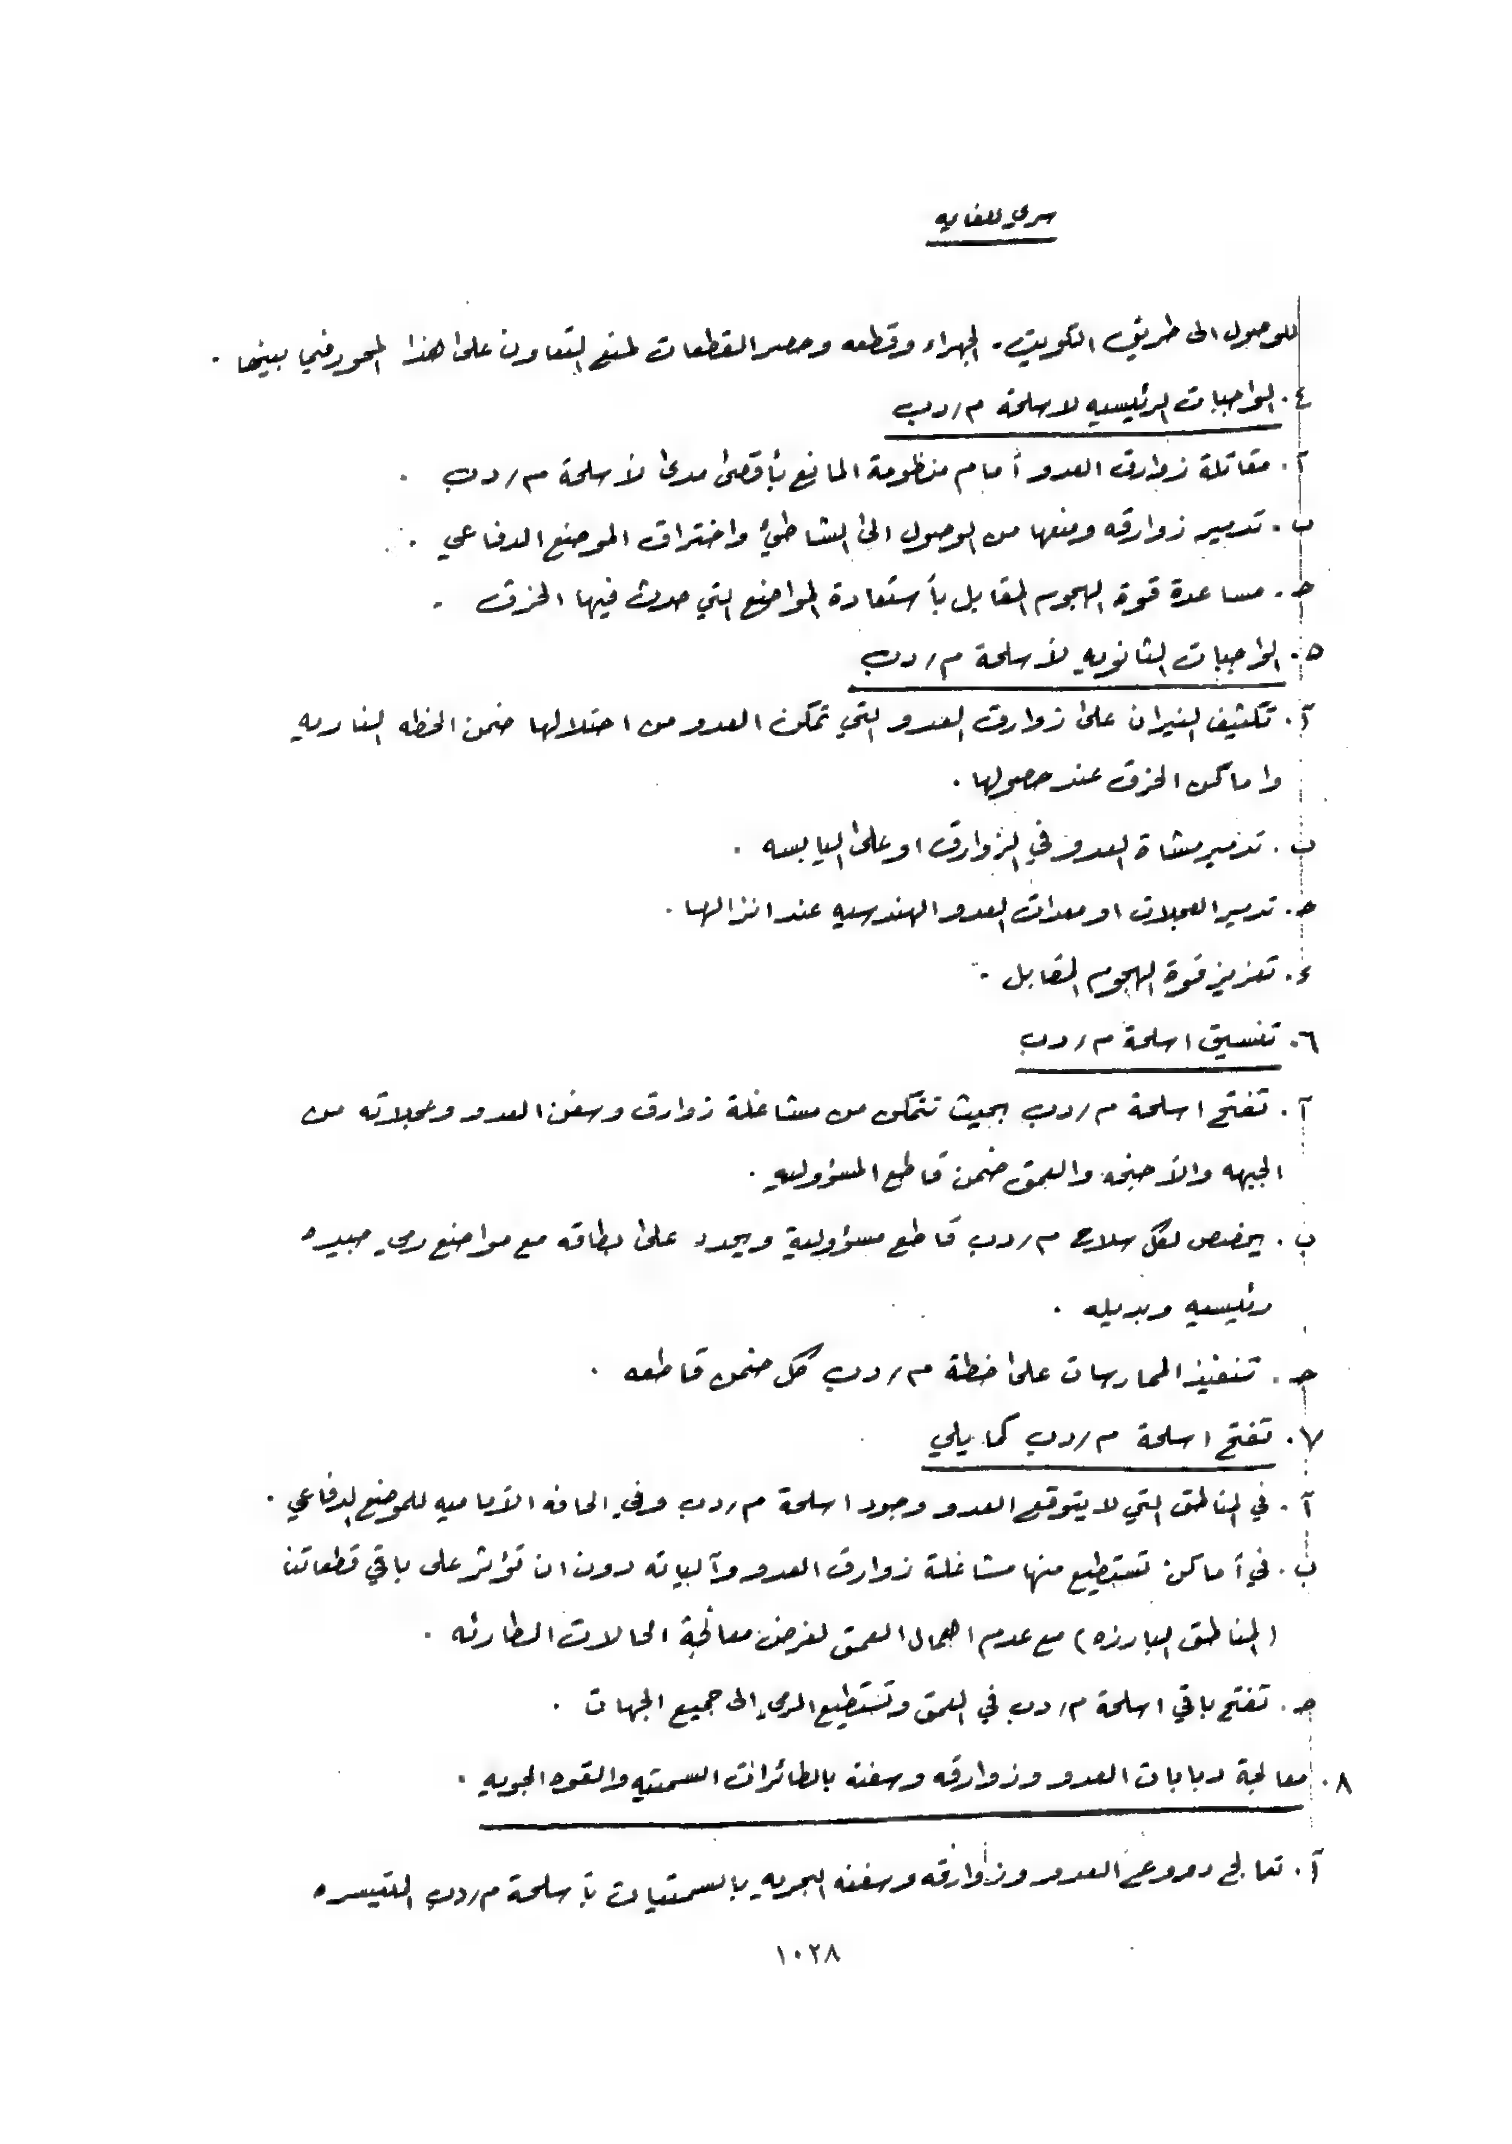 سري للغايه
للوصول الى طريق الكويت - الجهراء وقطعه وحصر القطعات لمنع التعاون على هذا المحور فيما بينها .
٤. الواجبات الرئيسيه لاسلحة م/دب
آ. مقاتلة زوارق العدو أمام منظومة المانع بأقصى مدى لأسلحة م/دب .
ب. تدمير زوارقه ومنعها من الوصول الى الشاطئ واختراق الموضع الدفاعي .
جـ. مساعدة قوة الهجوم المقابل بأستعادة المواضع التي حدث فيها الخرق .
٥. الواجبات الثانويه لأسلحة م/دب
آ. تكثيف النيران على زوارق العدو التي تمكن العدو من احتلالها ضمن الخطه الناريه
واماكن الخرق عند حصولها .
ب. تدمير مشاة العدو في الزوارق او على اليابسه .
جـ. تدمير العجلات او معدات العدو الهندسيه عند انزالها .
ء. تعزيز قوة الهجوم المقابل .
٦. تنسيق اسلحة م/دب
آ. تفتح اسلحة م/دب بحيث تتمكن من مشاغلة زوارق وسفن العدو وعجلاته من
الجبهه والأجنحه والعمق ضمن قاطع المسؤوليه .
ب. يخصص لكل سلاح م/دب قاطع مسؤولية ويحدد على بطاقه مع مواضع رمي جيده
رئيسيه وبديله .
جـ. تنفيذ الممارسات على خطة م/دب كل ضمن قاطعه .
٧. تفتح اسلحة م/دب كما يلي
آ. في المناطق التي لا يتوقع العدو وجود اسلحة م/دب وفي الحافه الأماميه للموضع الدفاعي .
ب. في أماكن تستطيع منها مشاغلة زوارق العدو وآلياته دون ان تؤثر على باقي قطعاتنا
(المناطق البارزه) مع عدم اهمال العمق لغرض معالجة الحالات الطارئه .
جـ. تفتح باقي اسلحة م/دب في العمق وتستطيع الرمي الى جميع الجهات .
٨. معالجة دبابات العدو وزوارقه وسفنه بالطائرات السمتيه والقوه الجويه .
آ. تعالج دروع العدو وزوارقه وسفنه البحريه بالسمتيات بأسلحة م/دب المتيسره
١٠٢٨